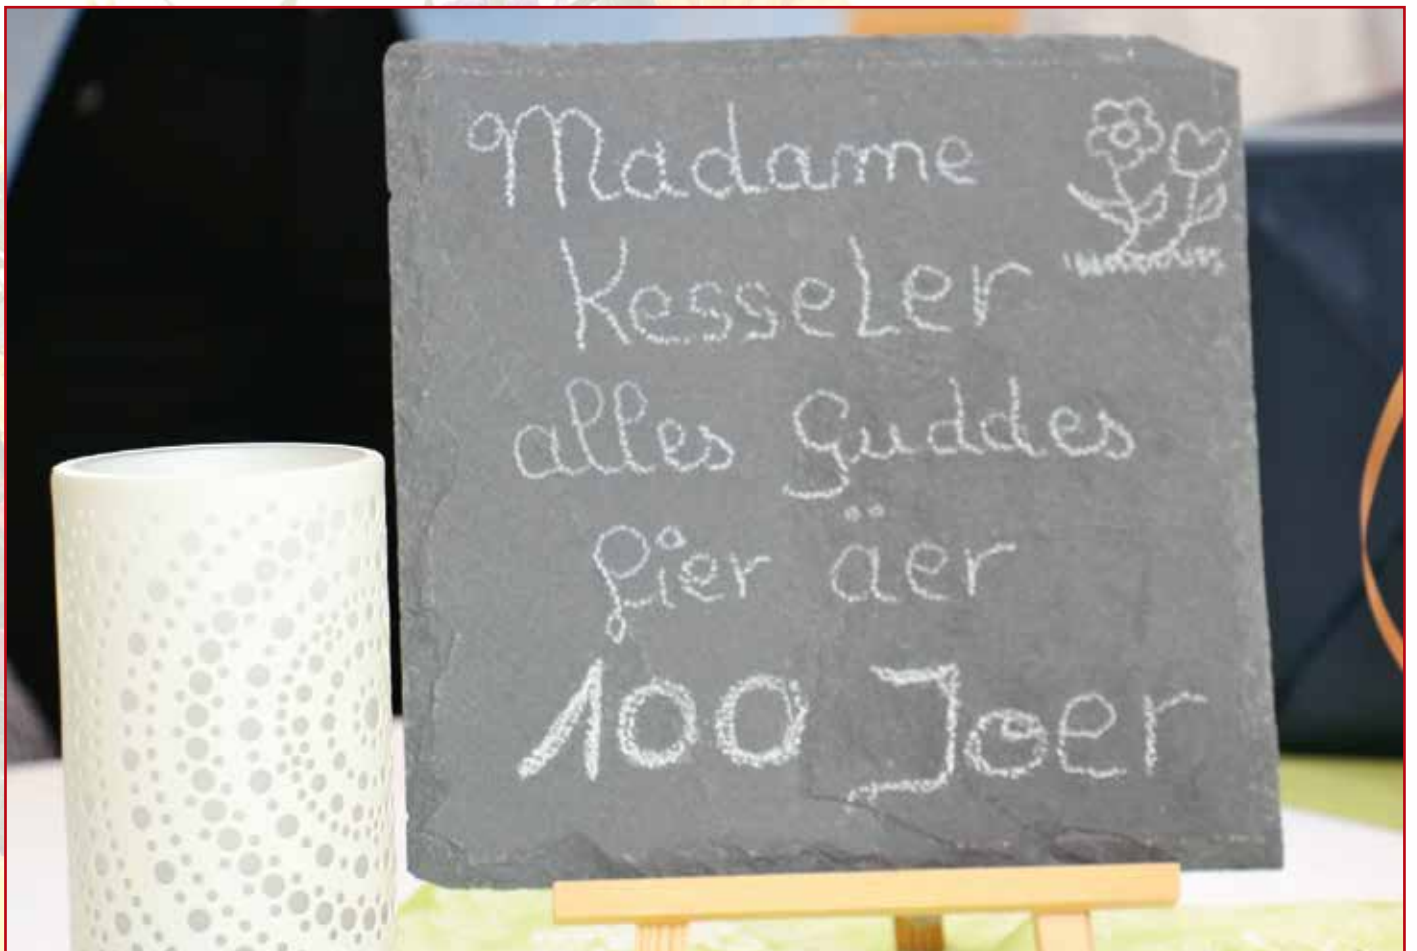 Madame
Kesseler
alles guddes
fier äer
100 Joer